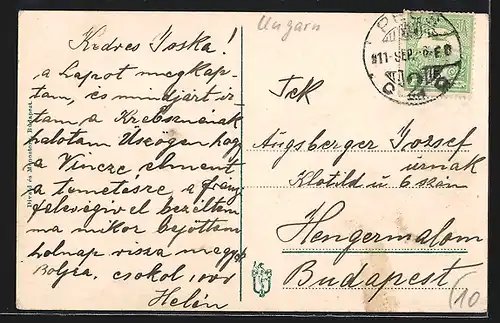 Kedves Joska!
a lapot megkap-
tam, és mindjárt ir
tam a Krebsznenak
halotam
hogy
a Vincze elment
a temetésre a
feleségivel beszéltem
ma mikor bejöttem
holnap vissza megyek
csokol
Helén
Divald és Monostory, Budapest
Ungarn
911 SEP
Tek
Augsberger Jozsef
urnak
Klotild u. 6 szám
Hengermalom
Budapest
10